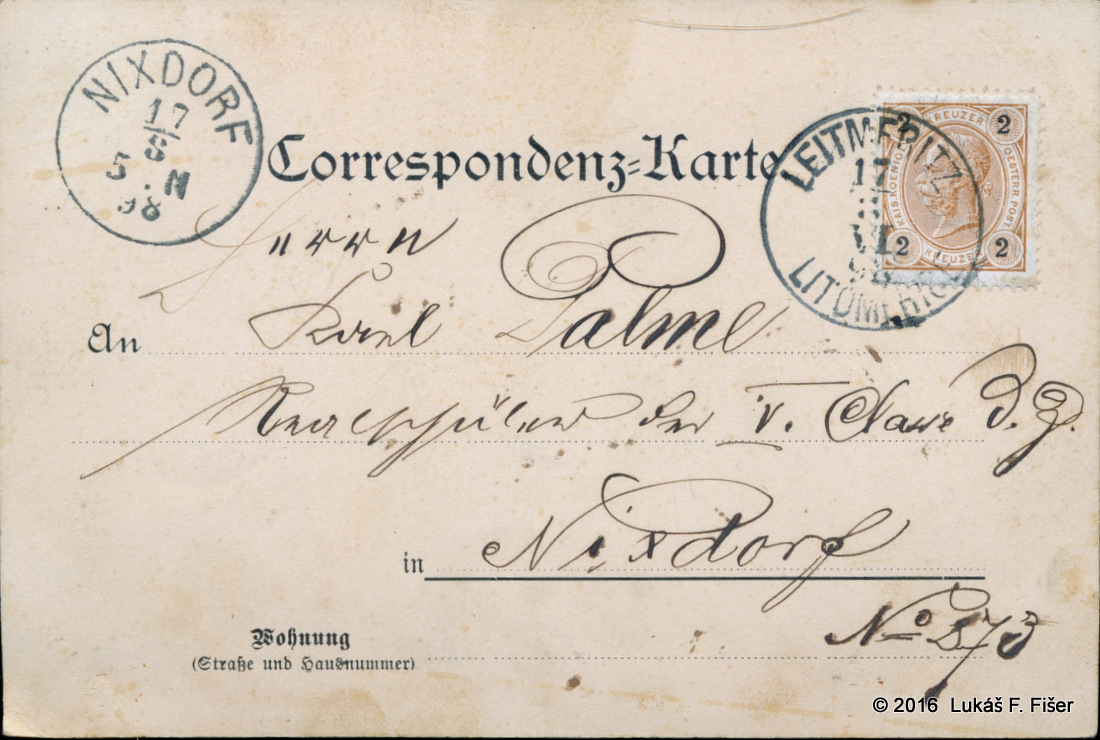 NIXDORF
17
8
5 . N
98
Correspondenz-Karte
LEITMERITZ
17
VI
98
LITOMĚŘICE
2 KREUZER 2
KAIS. KOENIGL. OESTERR. POST
2 KREUZER 2
Herrn
An Karl Palme
Realschüler der V. Classe d. Z.
in Nixdorf
Wohnung
(Straße und Hausnummer)
No 273
© 2016 Lukáš F. Fišer